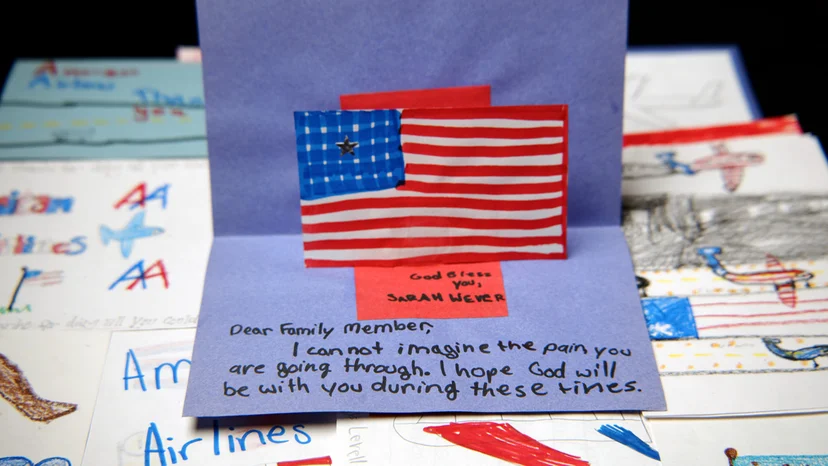 God Bless
you,
SARAH WEVER
Dear Family Member,
I cannot imagine the pain you
are going through. I hope God will
be with you during these tines.
Thank
you
AA
AA
Am
Airlines